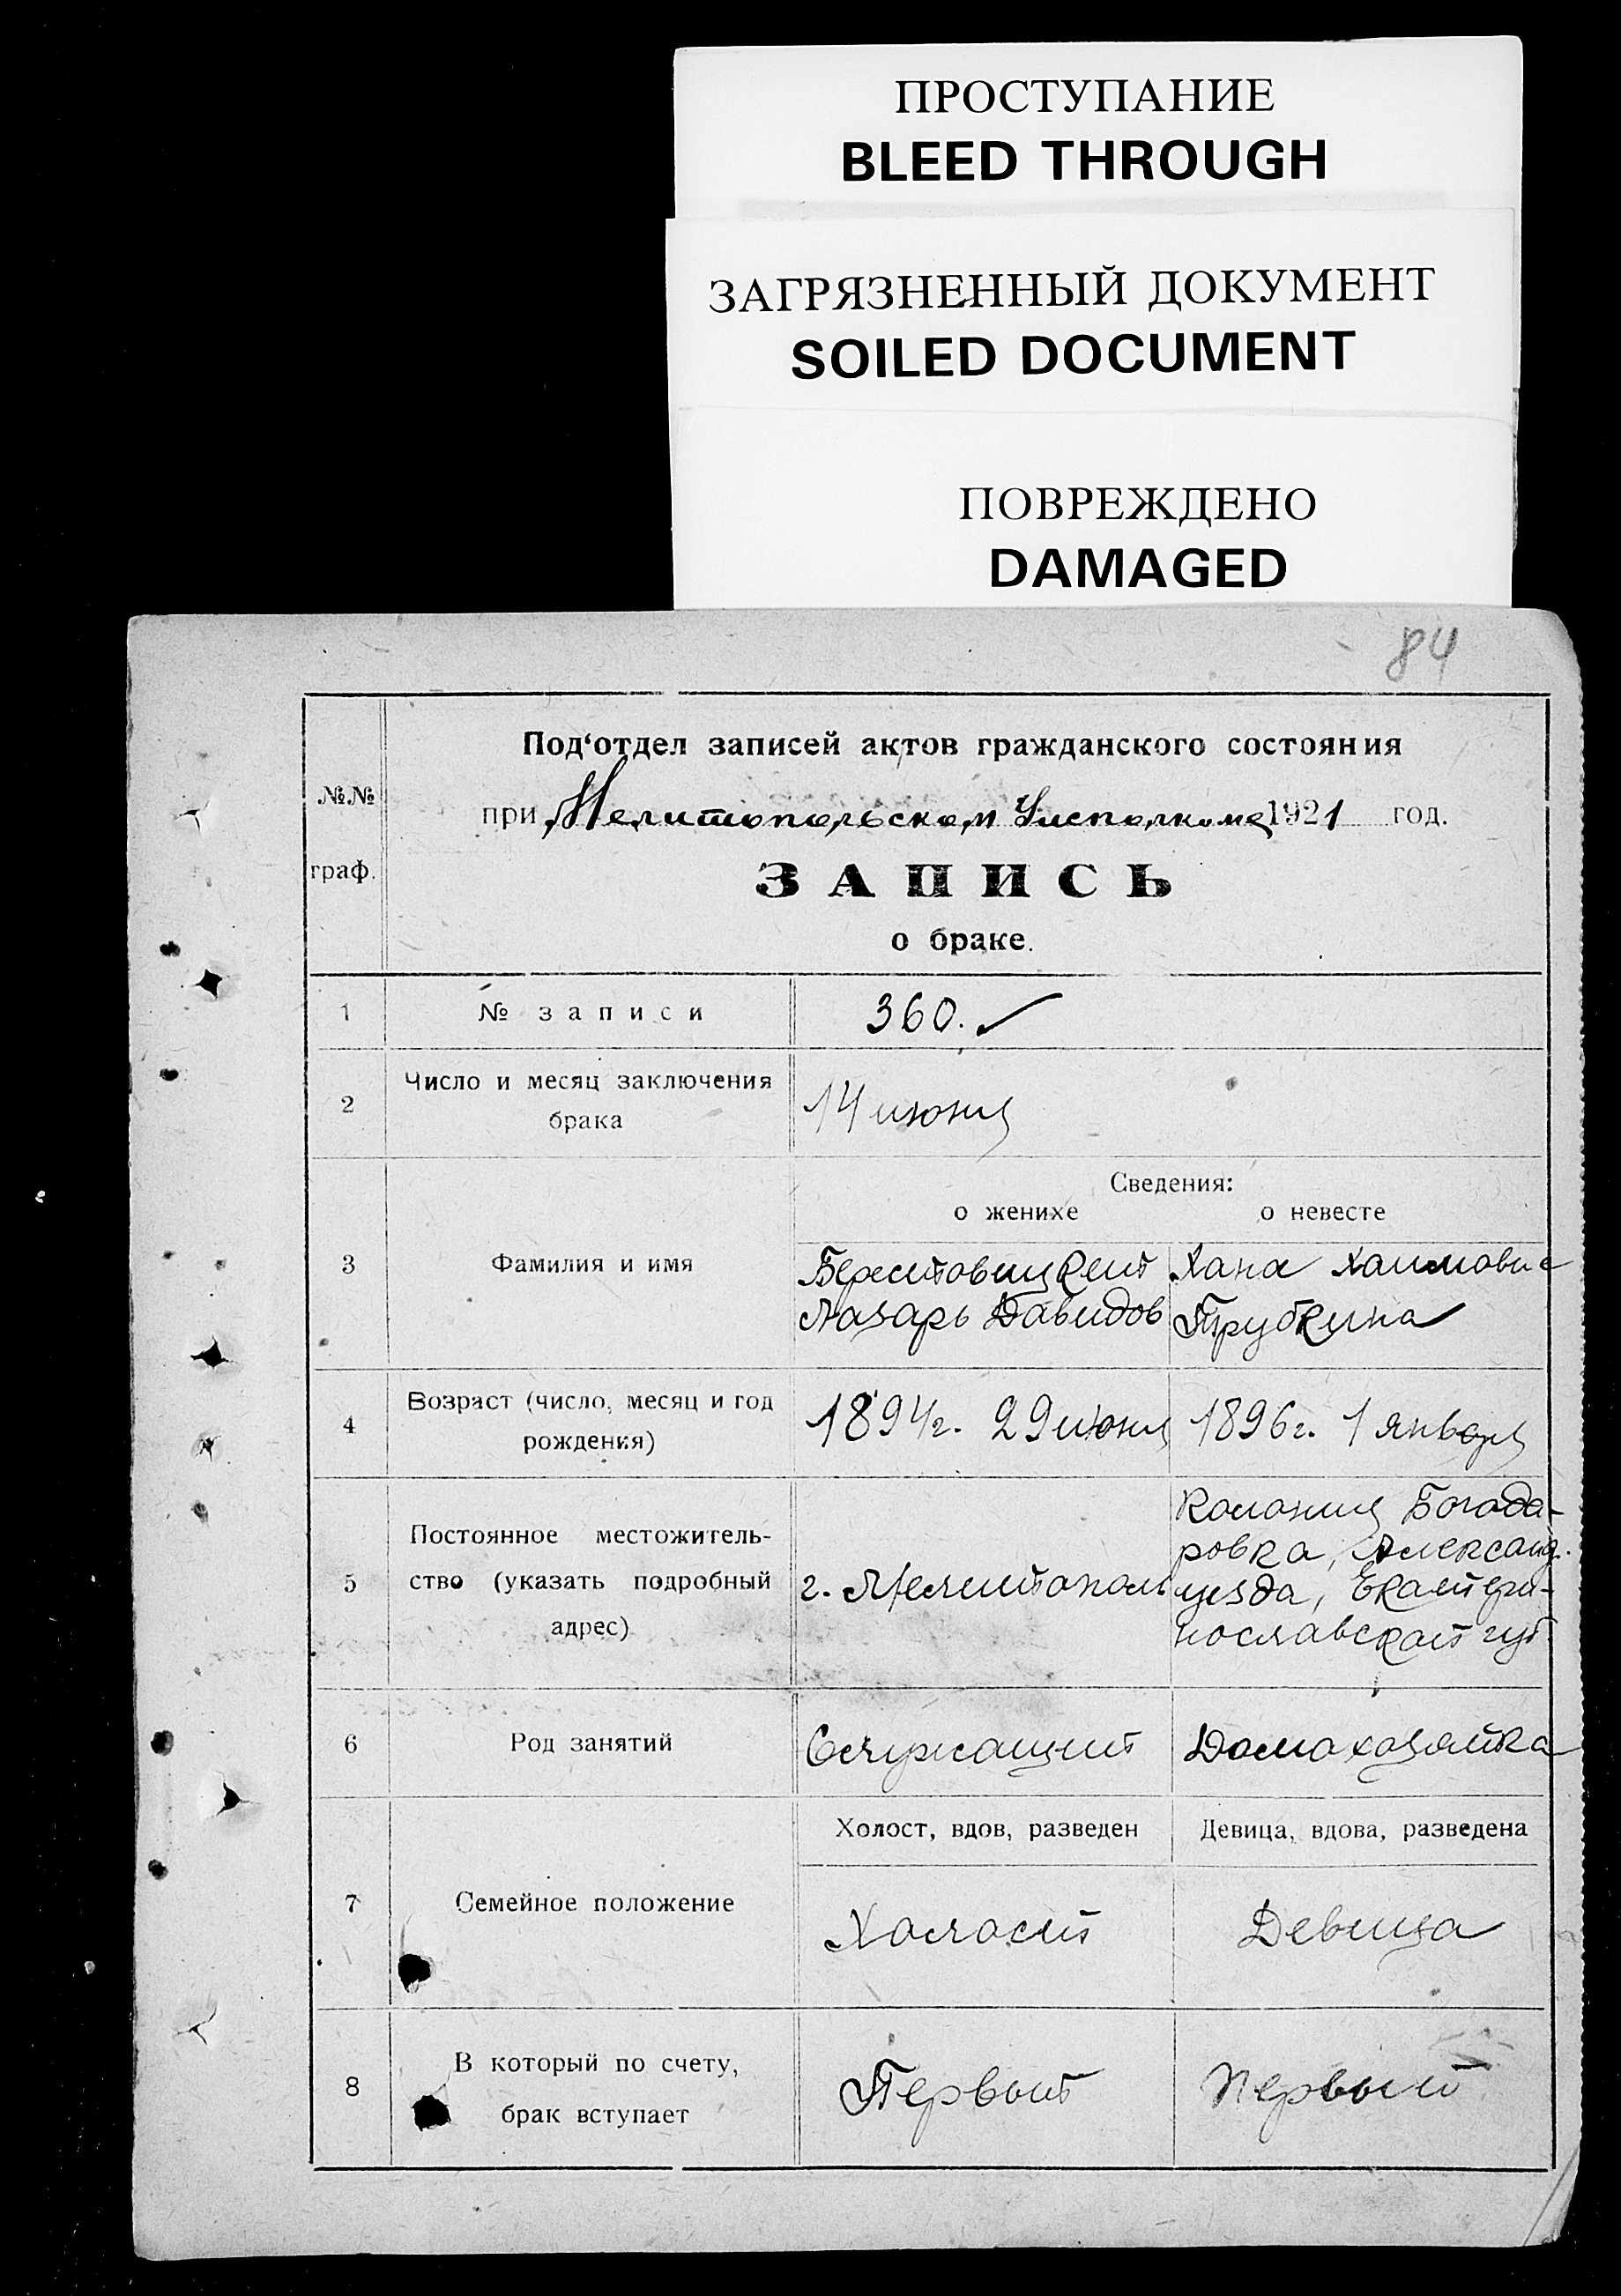 ПРОСТУПАНИЕ
BLEED THROUGH
ЗАГРЯЗНЕННЫЙ ДОКУМЕНТ
SOILED DOCUMENT
ПОВРЕЖДЕНО
DAMAGED
84
№№
граф.
Под‘отдел записей актов гражданского состояния
при Мелитопольском Уисполкоме 1921 год.
ЗАПИСЬ
о браке.
1 № записи 360.
2 Число и месяц заключения
брака
14 июня
Сведения:
о женихе о невесте
3 Фамилия и имя
Берестовицкий
Лазарь Давидов
Хана Хаимовна
Трубкина
4 Возраст (число, месяц и год
рождения)
1894г. 29 июня
1896г. 1 января
5 Постоянное местожитель-
ство (указать подробный
адрес)
г. Мелитополь
Колония Богода-
ровка, Александ.
уезда, Екатери-
нославской губ.
6 Род занятий
Служащий
Домахозяйка
7 Семейное положение
Холост, вдов, разведен
Девица, вдова, разведена
Холост
Девица
8 В который по счету,
брак вступает
Первый
Первый